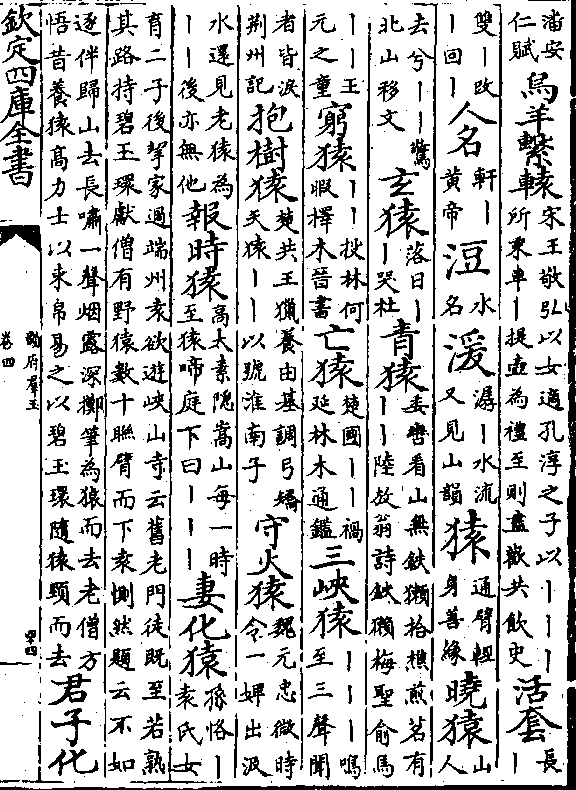 潘安仁賦 烏羊繫轅 宋王敬弘以女適孔淳之子以丨丨丨所乘車丨提壺為禮至則盡歡共飲史 活套 長丨
雙丨改丨回丨 人名 軒丨黄帝 洹 水名 湲 潺丨水流又見山韻 猿 通臂輕身善緣 曉猿 山人
去兮丨丨驚北山移文 玄猿 落日丨丨哭杜 青猿 看山無鈇獺拾樵煎茗有丨丨陸放翁詩 梅聖俞馬
丨丨王元之童 窮猿 丨丨投林何暇擇木晉書 亡猿 楚國丨丨禍延林木通鑑 三峽猿 丨丨丨鳴至三聲聞
者皆淚荆州記 抱樹猿 楚共王獵養由基調弓矯矢猿丨丨以號淮南子 守火猿 魏元忠微時令一婢出汲
水還見老猿為丨丨後亦無他 報時猿 髙太素隱嵩山每一時至猿啼庭下曰丨丨丨 妻化猿 孫恪丨袁氏女
育二子後挈家過端州袁欲遊峽山寺云舊老門徒既至若熟其路持碧玉環獻僧有野猿數十聯臂而下袁惻然題云不如
逐伴歸山去長嘯一聲烟霧深擲筆為猿而去老僧方悟昔養猿髙力士以束帛易之以碧玉環隨猿頸而去 君子化
欽定四庫全書
韻府羣玉
卷四
四十四